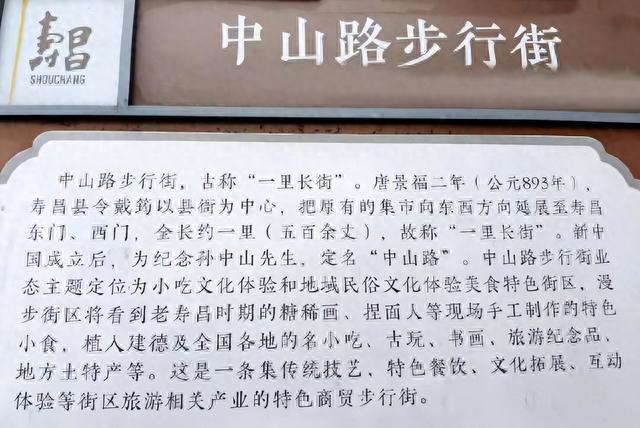 寿昌
SHOUCHANG
中山路步行街
中山路步行街，古称“一里长街”。唐景福二年（公元893年），
寿昌县令戴筠以县衙为中心，把原有的集市向东西方向延展至寿昌
东门、西门，全长约一里（五百余丈），故称“一里长街”。新中
国成立后，为纪念孙中山先生，定名“中山路”。中山路步行街业
态主题定位为小吃文化体验和地域民俗文化体验美食特色街区，漫
步街区将看到老寿昌时期的糖稀画、捏面人等现场手工制作的特色
小食，植入建德及全国各地的名小吃、古玩、书画、旅游纪念品、
地方土特产等。这是一条集传统技艺，特色餐饮、文化拓展、互动
体验等街区旅游相关产业的特色商贸步行街。